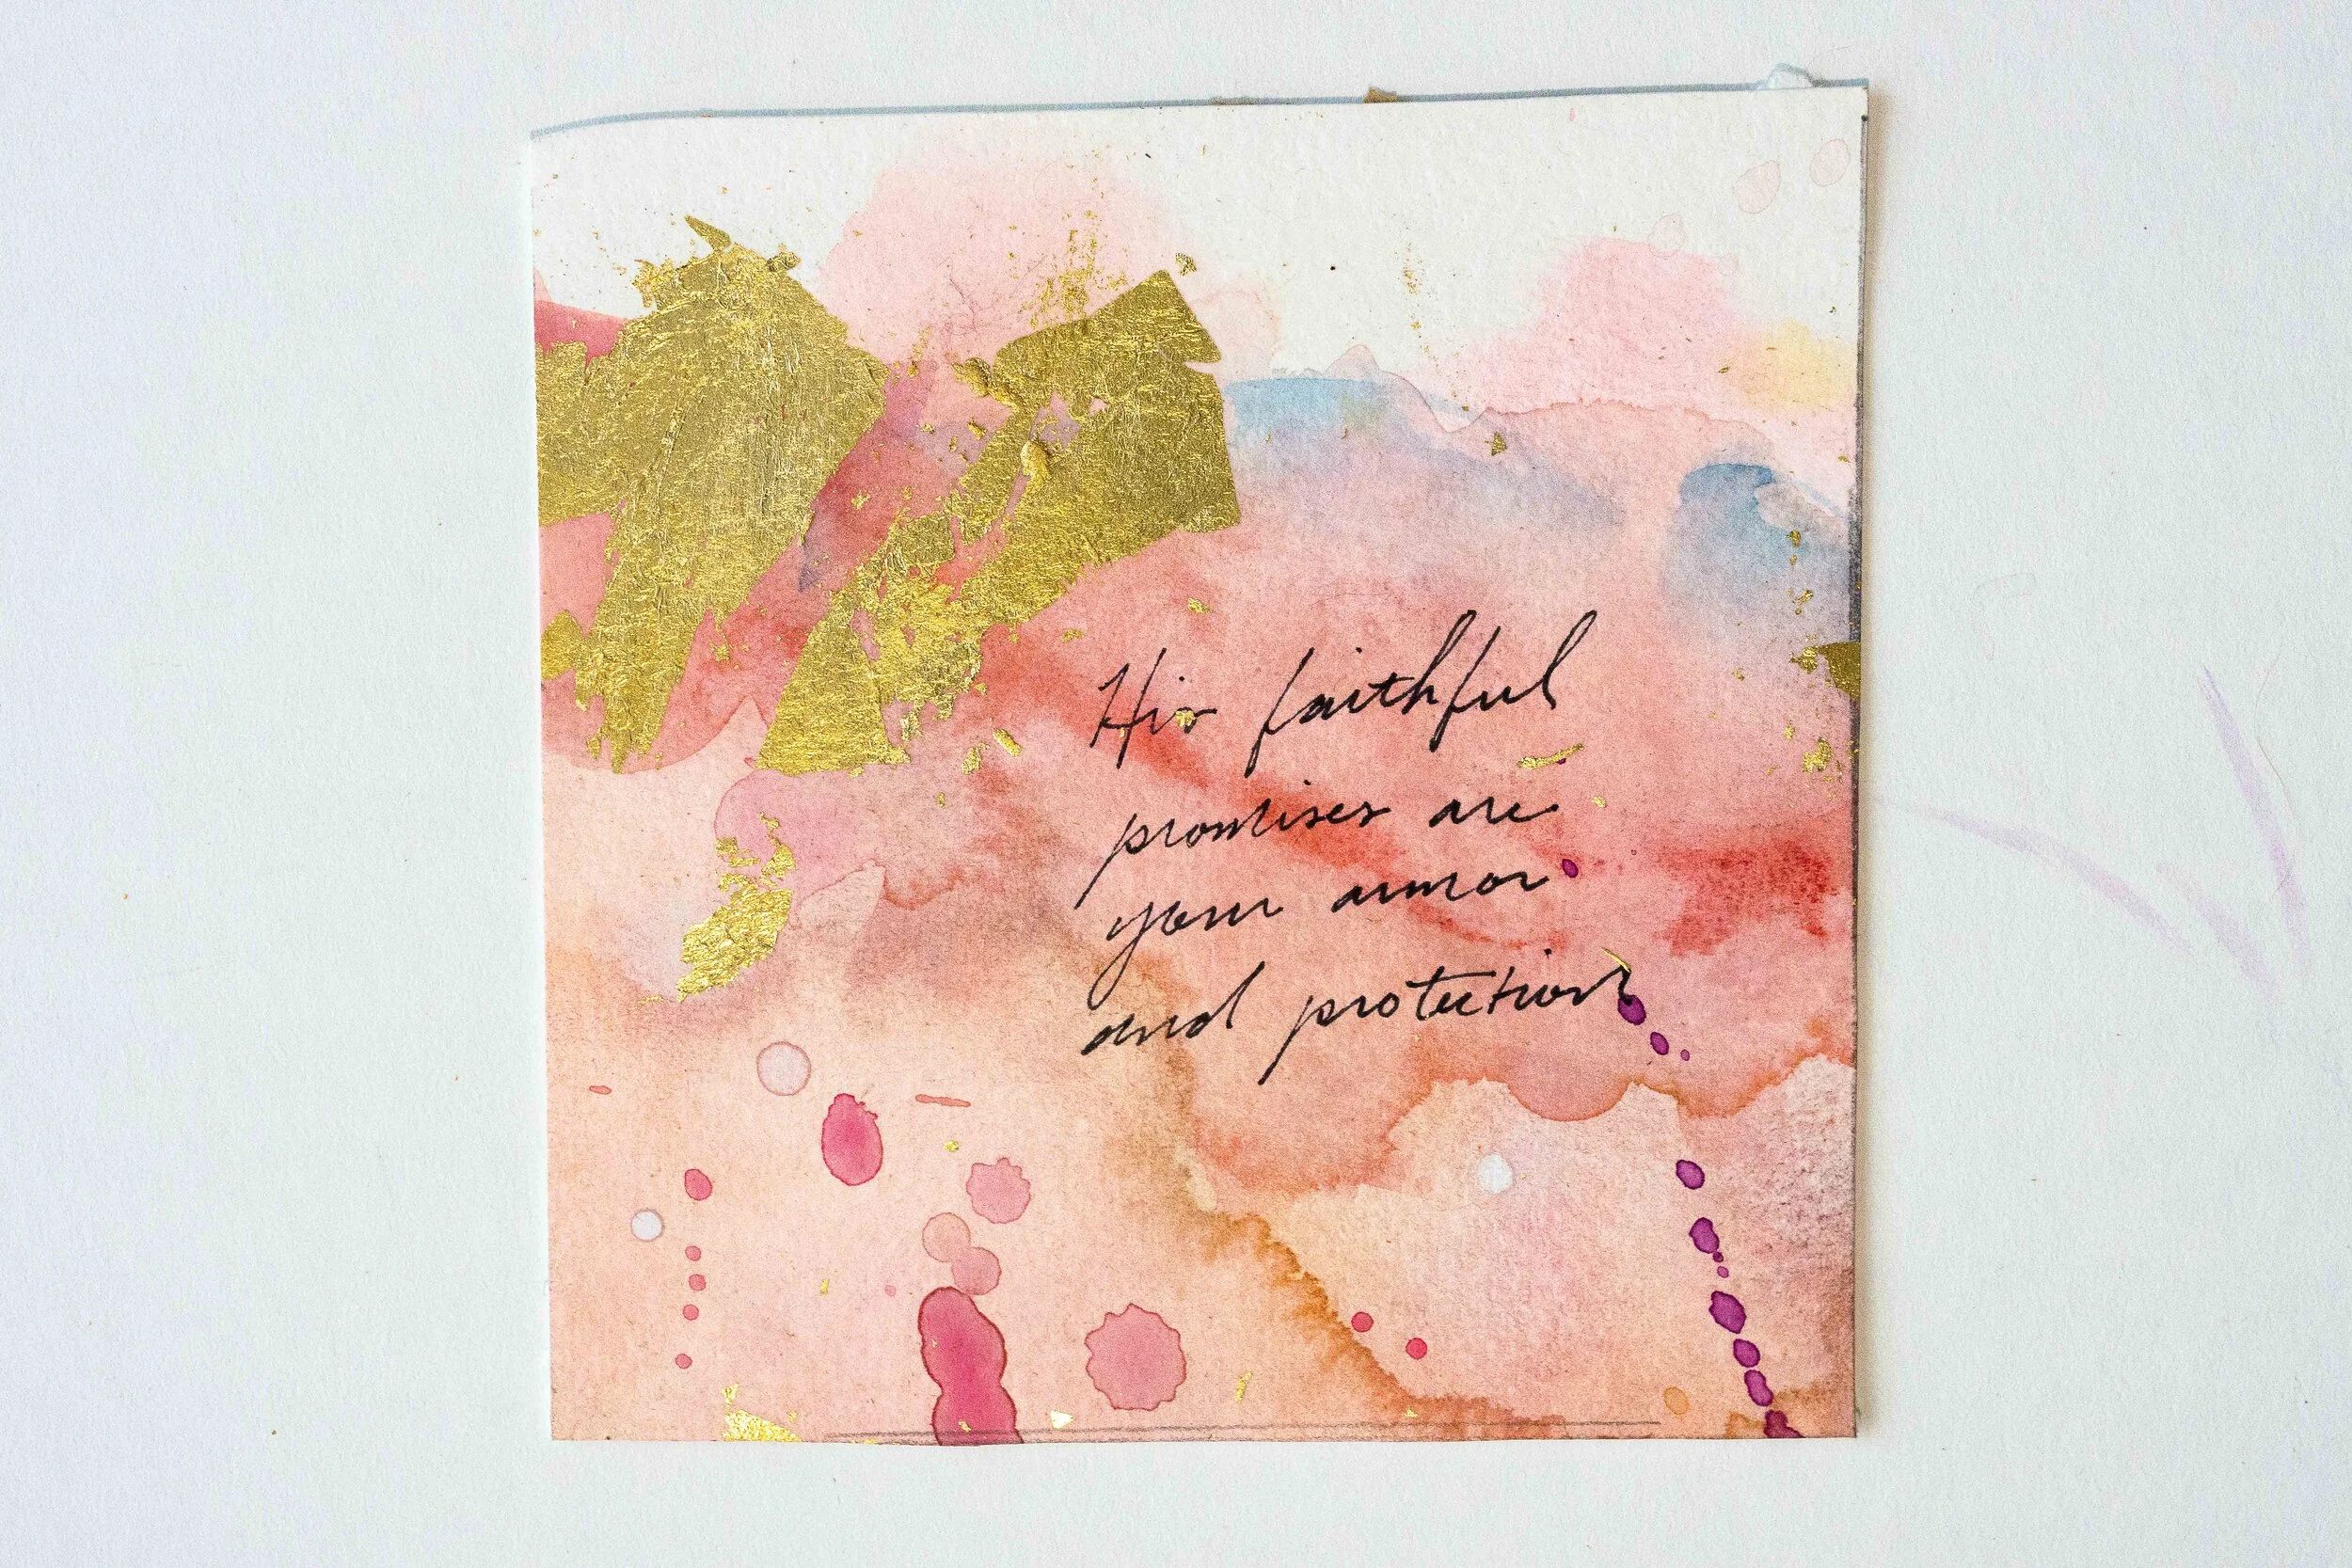 His faithful
promises are
your armor
and protection